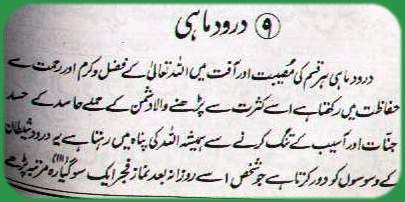 ۹ درود ماہی
درود ماہی ہر قسم کی مصیبت اور آفت میں اللہ تعالیٰ کے فضل و کرم اور رحمت سے
حفاظت میں رکھتا ہے اسے کثرت سے پڑھنے والا دشمن کے حملے حاسد کے حسد
جنات اور آسیب کے تنگ کرنے سے ہمیشہ اللہ کی پناہ میں رہتا ہے یہ درود شیطان
کے وسوسوں کو دور کرتا ہے جو شخص اسے روزانہ بعد نماز فجر ایک سو گیارہ (۱۱۱) مرتبہ پڑھے